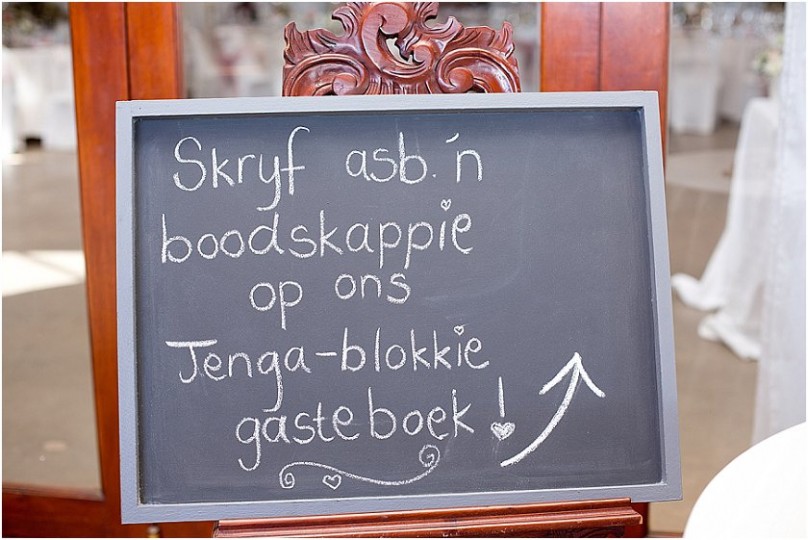 Skryf asb. 'n
boodskappie
op ons
Jenga-blokkie
gasteboek!